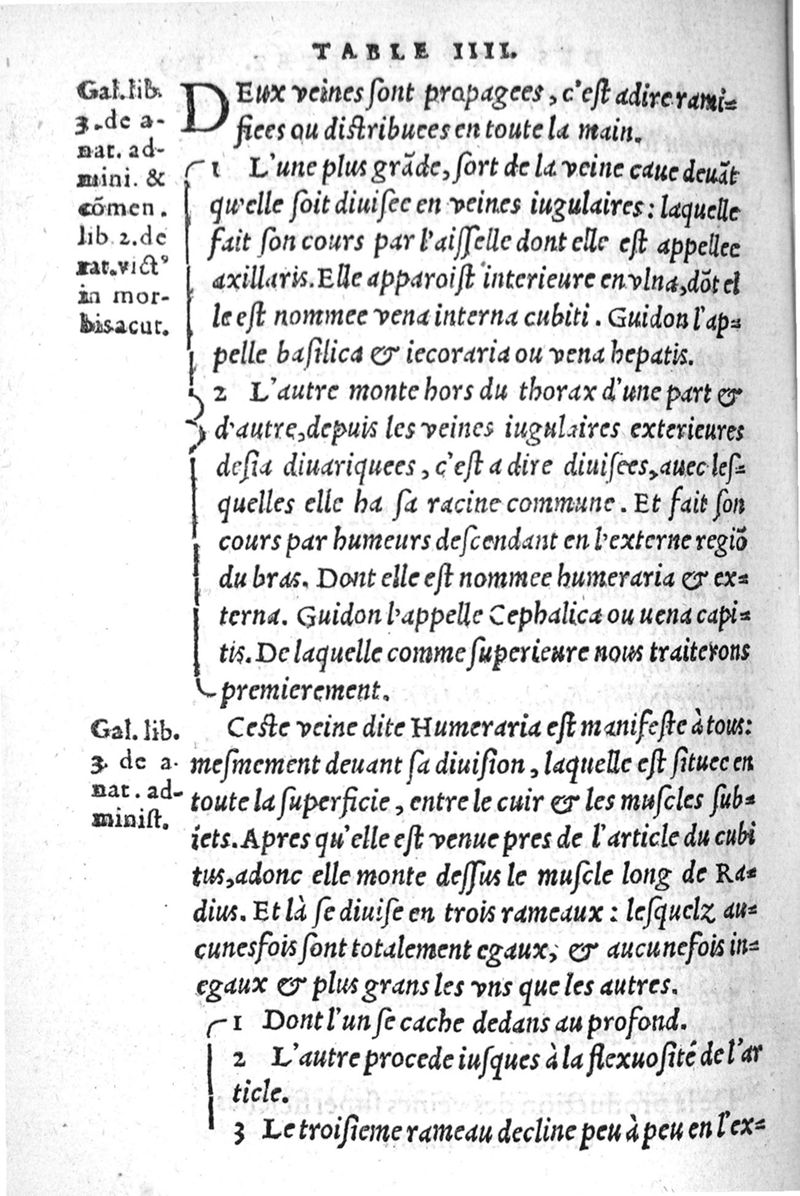 TABLE IIII.
Gal. lib.
3. de a-
nat. ad-
mini. &
cõmen.
lib 2. de
rat. vict⁹
in mor-
bis acut.
DEux veines sont propagees, c'est adire rami-
fiees ou distribuees en toute la main.
1 L'une plus grãde, sort de la veine caue deuãt
qu'elle soit diuisee en veines iugulaires: laquelle
fait son cours par l'aisselle dont elle est appellee
axillaris. Elle apparoist interieure en vlna, dõt el
le est nommee vena interna cubiti. Guidon l'ap-
pelle basilica & iecoraria ou vena hepatis.
2 L'autre monte hors du thorax d'une part &
d'autre, depuis les veines iugulaires exterieures
desia diuariquees, c'est a dire diuisees, auec les-
quelles elle ha sa racine commune. Et fait son
cours par humeurs descendant en l'externe regiõ
du bras. Dont elle est nommee humeraria & ex-
terna. Guidon l'appelle Cephalica ou uena capi-
tis. De laquelle comme superieure nous traiterons
premierement.
Gal. lib.
3. de a-
nat. ad-
minist.
Ceste veine dite Humeraria est manifeste à tous:
mesmement deuant sa diuision, laquelle est situee en
toute la superficie, entre le cuir & les muscles sub-
iets. Apres qu'elle est venue pres de l'article du cubi
tus, adonc elle monte dessus le muscle long de Ra-
dius. Et là se diuise en trois rameaux: lesquelz au-
cunesfois sont totalement egaux, & aucunefois in-
egaux & plus grans les vns que les autres.
1 Dont l'un se cache dedans au profond.
2 L'autre procede iusques à la flexuosité de l'ar
ticle.
3 Le troisieme rameau decline peu à peu en l'ex-